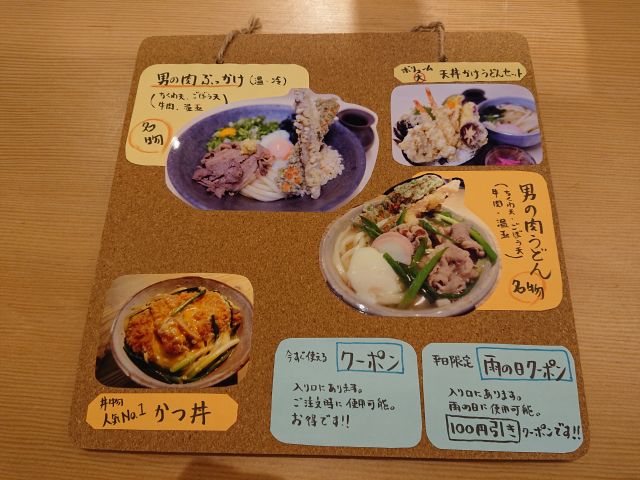 男の肉ぶっかけ(温・冷)
(ちくわ天、ごぼう天
牛肉、温玉)
名物
ボリューム大
天丼かけうどんセット
男の肉うどん
(ちくわ天・ごぼう天
牛肉・温玉)
名物
丼物
人気No.1 かつ丼
今すぐ使える クーポン
入り口にあります。
ご注文時に使用可能。
お得です!!
平日限定 雨の日クーポン
入り口にあります。
雨の日に使用可能。
100円引きクーポンです!!